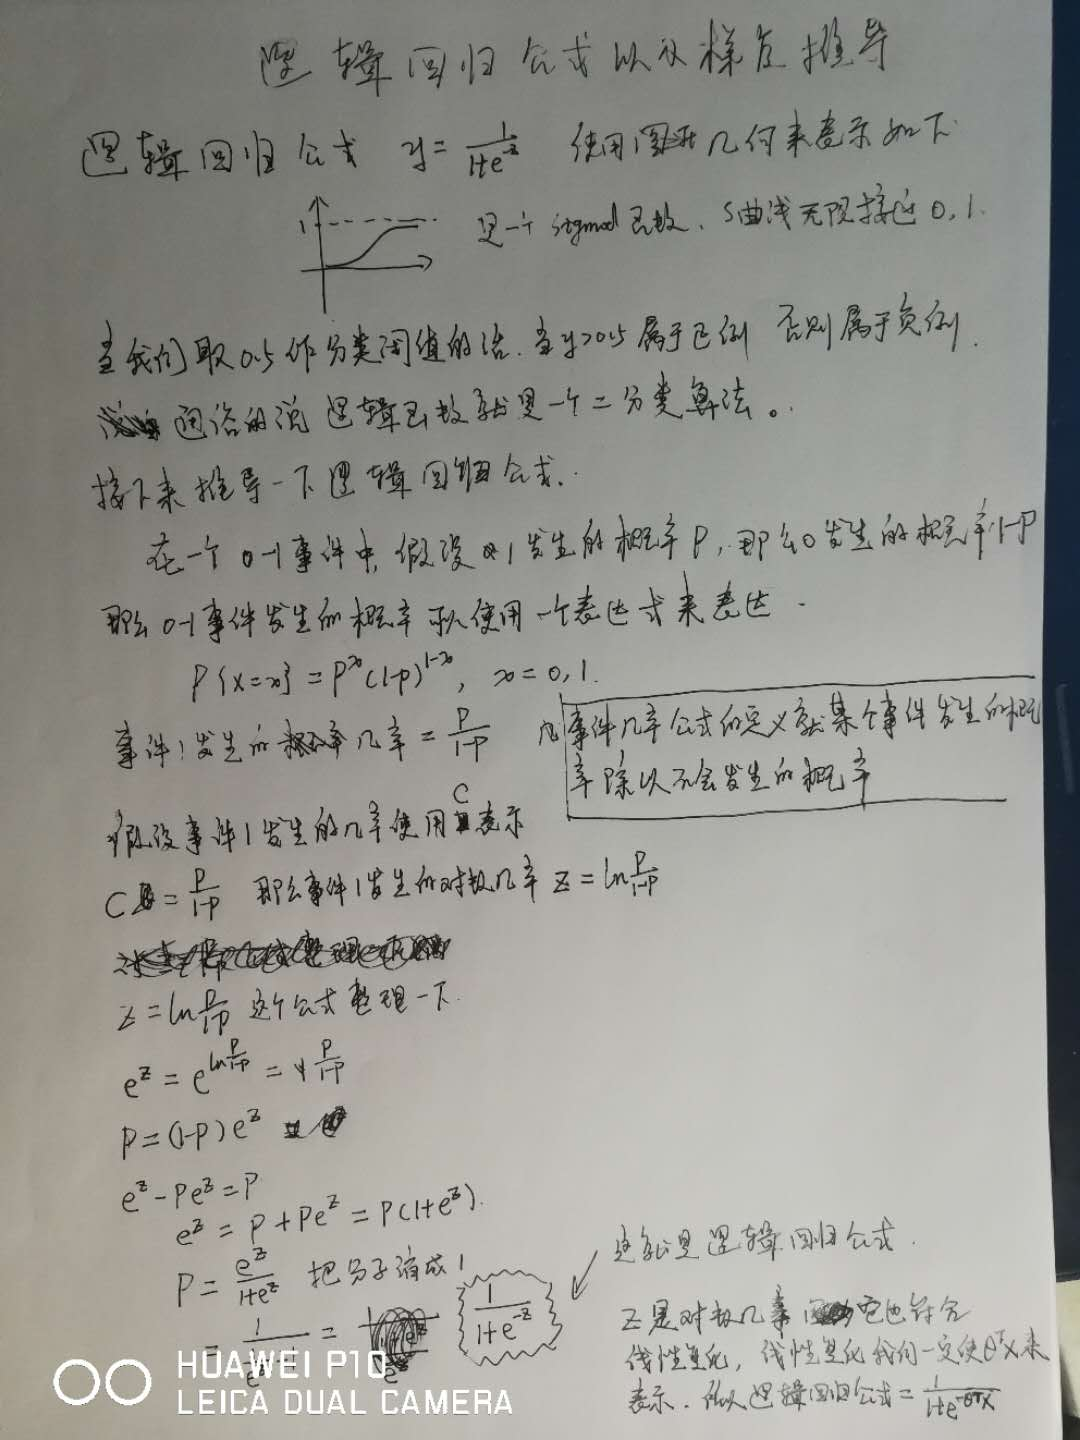 逻辑回归公式以及样应推导
逻辑回归公式 y = 1/(1+e^-z) 使用图形几何来表示如下
1 是一个 sigmod 函数、S曲线无限接近 0, 1.
当我们取 0.5 作分类阈值的话. 当 y>0.5 属于正例 否则属于负例.
通俗的说 逻辑函数就是一个二分类算法。
接下来推导一下逻辑回归公式.
在一个 0-1事件中, 假设 1发生的概率 P, 那么0发生的概率 1-P
那么 0-1事件发生的概率 可以使用一个表达式来表达.
P{X=x} = P^x (1-p)^(1-x), x = 0, 1.
事件1发生的几率 = P/(1-P)
事件几率公式的定义就某个事件发生的概
率除以不会发生的概率
假设事件1发生的几率使用 C 表示
C = P/(1-P) 那么事件1发生的对数几率 Z = ln P/(1-P)
Z = ln P/(1-P) 这个公式整理一下.
e^z = e^(ln P/(1-P)) = P/(1-P)
P = (1-P) e^z
e^z - Pe^z = P
e^z = P + Pe^z = P(1+e^z).
P = e^z/(1+e^z) 把分子消成1
= 1/ = 1/(1+e^-z)
这就是逻辑回归公式.
Z是对数几率 它也符合
线性变化, 线性变化我们一定使θ^T X来
表示. 所以逻辑回归公式 = 1/(1+e^-θTX)
HUAWEI P10
LEICA DUAL CAMERA